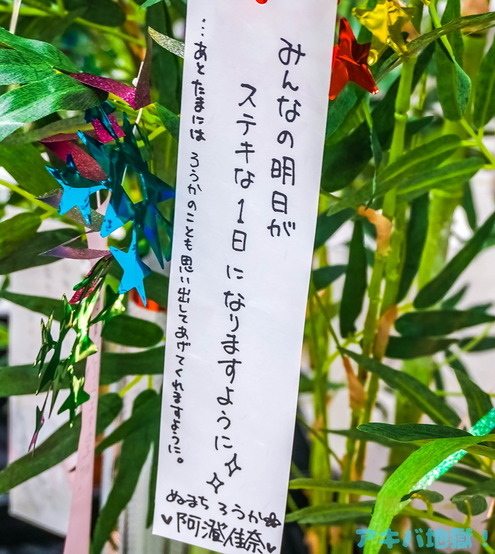 みんなの明日が
ステキな1日になりますように✧✧
…あと たまには ろうかのことも思い出してあげてくれますように。
ぬまち ろうか
♥阿澄佳奈♥
アキバ地獄!